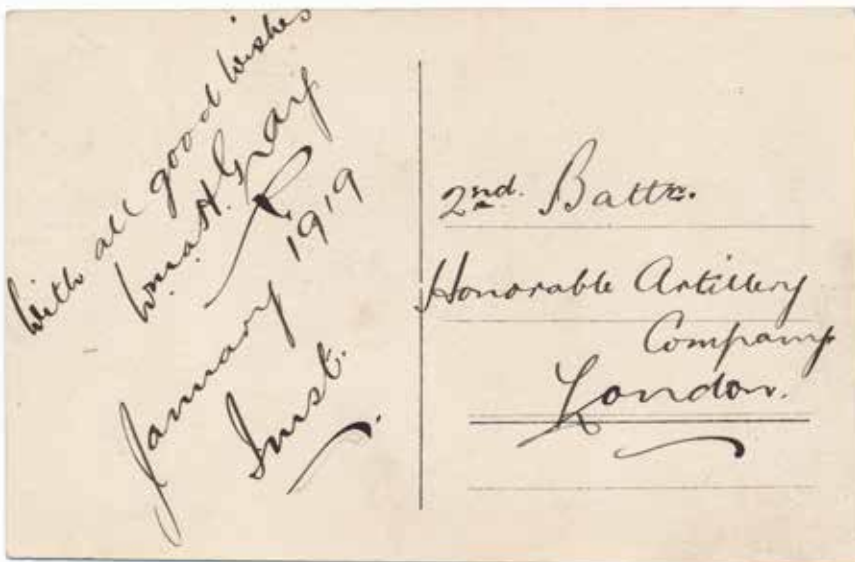 With all good wishes
Wm A. H. Gray
January 1919
Imst.
2nd. Battn.
Honorable Artillery
Company
London.